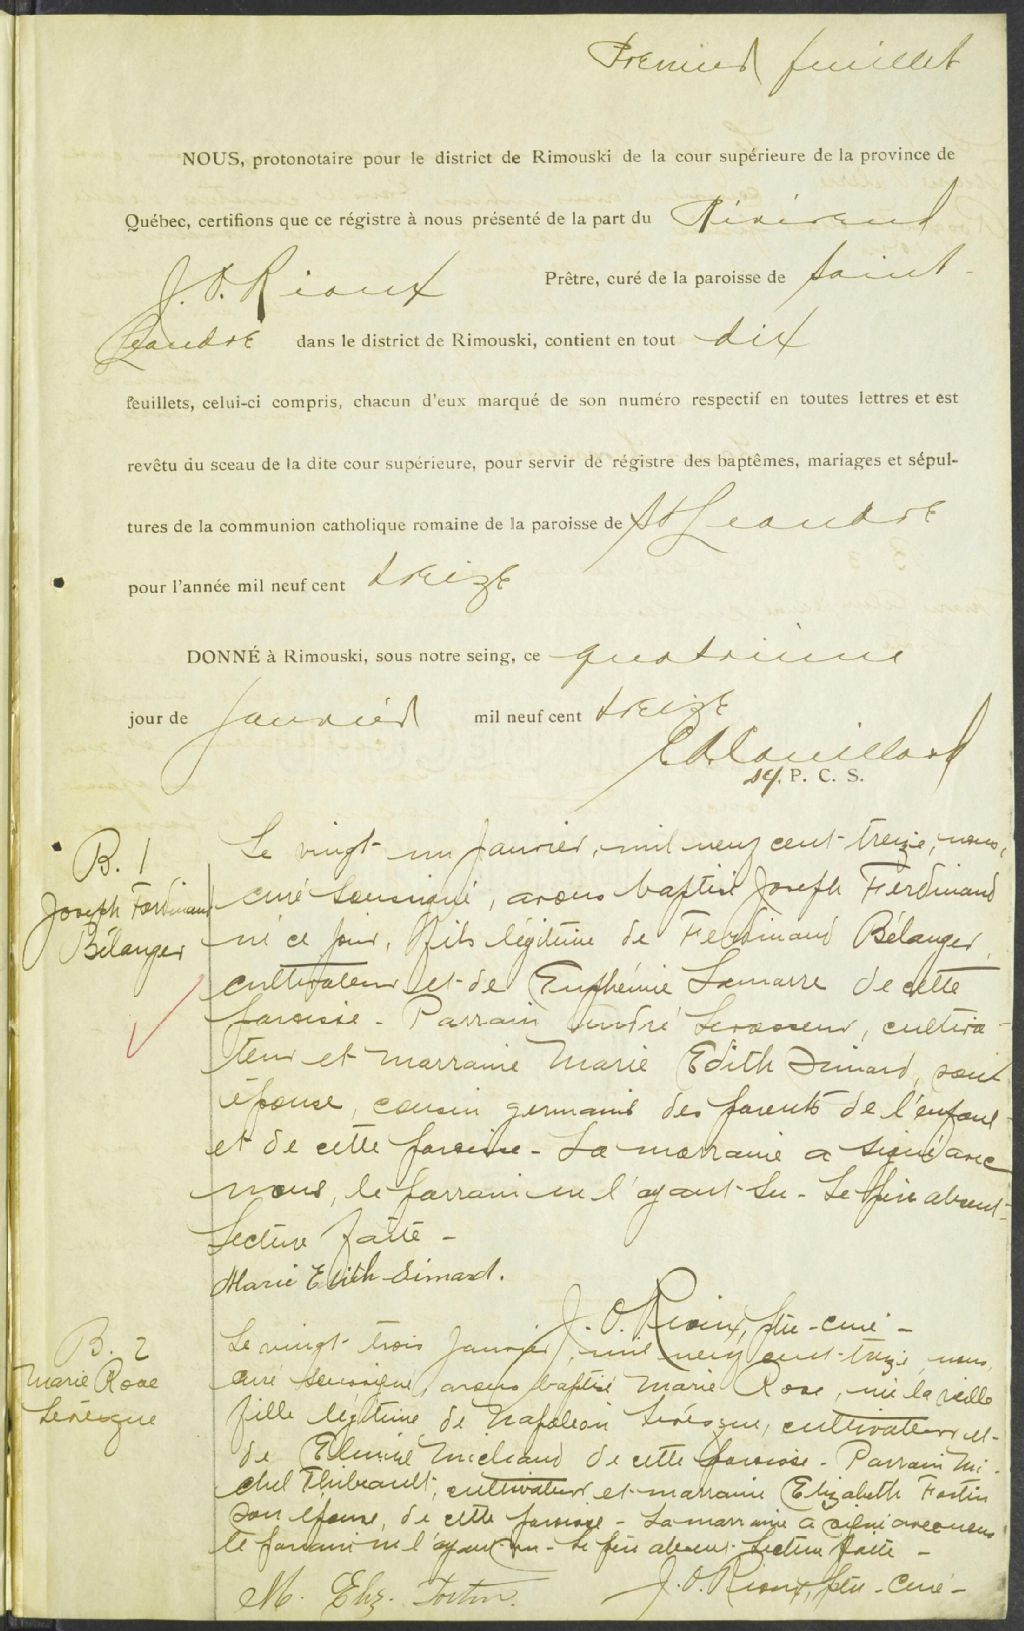 Premier feuillet
NOUS, protonotaire pour le district de Rimouski de la cour supérieure de la province de
Québec, certifions que ce régistre à nous présenté de la part du Révérend
J. O. Rioux Prêtre, curé de la paroisse de Saint-
Léandre dans le district de Rimouski, contient en tout dix
feuillets, celui-ci compris, chacun d'eux marqué de son numéro respectif en toutes lettres et est
revêtu du sceau de la dite cour supérieure, pour servir de régistre des baptêmes, mariages et sépul-
tures de la communion catholique romaine de la paroisse de St Leandre
pour l'année mil neuf cent treize
DONNÉ à Rimouski, sous notre seing, ce quatorzième
jour de Janvier mil neuf cent treize
Couillard
P. C. S.
B. 1
Joseph Ferdinand
Bélanger
Le vingt un Janvier, mil neuf cent treize, nous,
curé soussigné, avons baptisé Joseph Ferdinand
né ce jour, fils légitime de Ferdinand Bélanger,
cultivateur et de Euphémie Lamarre de cette
paroisse - Parrain André Levasseur, cultiva-
teur et marraine Marie Edith Simard, son
épouse, cousin germains des parents de l'enfant
et de cette paroisse - La marraine a signé avec
nous, le parrain ne l'ayant su - Le père absent -
Lecture faite -
Marie Edith Simard.
J. O. Rioux, Ptre - curé -
B. 2
Marie Rose
Lévesque
Le vingt trois Janvier, mil neuf cent treize, nous,
curé soussigné, avons baptisé Marie Rose, née la veille
fille légitime de Napoléon Lévesque, cultivateur et
de Elmire Michaud de cette paroisse - Parrain Mi-
chel Thibeault, cultivateur et marraine Elizabeth Fortin
son épouse, de cette paroisse - La marraine a signé avec nous
le parrain ne l'ayant su - Le père absent. Lecture faite -
M. Eliz. Fortin.
J. O. Rioux, Ptre - Curé -